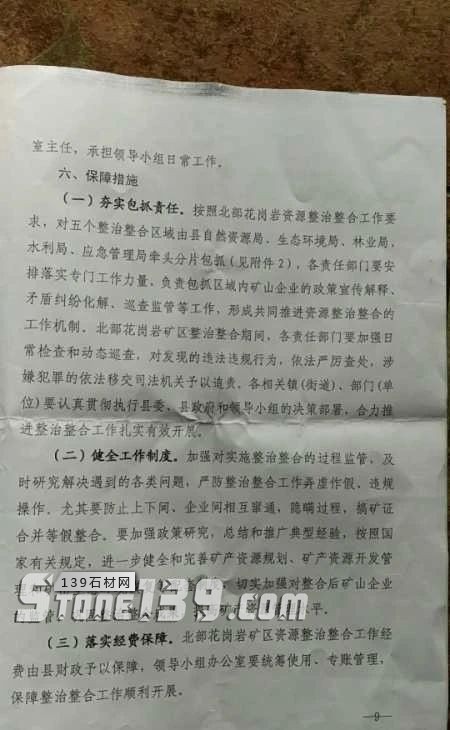 室主任，承担领导小组日常工作。
六、保障措施
（一）夯实包抓责任。按照北部花岗岩资源整治整合工作要
求，对五个整治整合区域由县自然资源局、生态环境局、林业局、
水利局、应急管理局牵头分片包抓（见附件2），各责任部门要安
排落实专门工作力量，负责包抓区域内矿山企业的政策宣传解释、
矛盾纠纷化解、巡查监管等工作，形成共同推进资源整治整合的
工作机制。北部花岗岩矿区整治整合期间，各责任部门要加强日
常检查和动态巡查，对发现的违法违规行为，依法严厉查处，涉
嫌犯罪的依法移交司法机关予以追责。各相关镇(街道)、部门(单
位)要认真贯彻执行县委、县政府和领导小组的决策部署，合力推
进整治整合工作扎实有效开展。
（二）健全工作制度。加强对实施整治整合的过程监管，及
时研究解决遇到的各类问题，严防整治整合工作弄虚作假、违规
操作。尤其要防止上下同、企业间相互串通，隐瞒过程，搞矿证
合并等假整合。要加强政策研究，总结和推广典型经验，按照国
家有关规定，进一步健全和完善矿产资源规划、矿产资源开发管
切实加强对整合后矿山企业
139石材网
Stone139.com
平。
（三）落实经费保障。北部花岗岩矿区资源整治整合工作经
费由县财政予以保障，领导小组办公室要统筹使用、专账管理，
保障整治整合工作顺利开展。
—9—